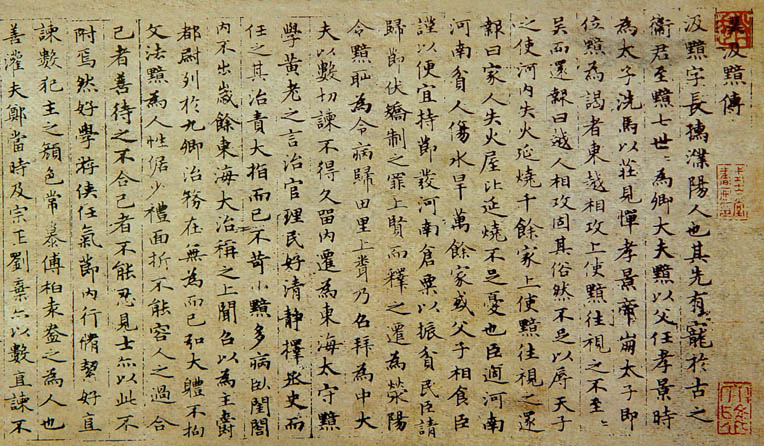 漢汲黯傳
汲黯字長孺濮陽人也其先有寵於古之
衛君至黯七世〻為卿大夫黯以父任孝景時
為太子洗馬以莊見憚孝景帝崩太子即
位黯為謁者東越相攻上使黯往視之不至〻
吳而還報曰越人相攻固其俗然不足以辱天子
之使河內失火延燒千餘家上使黯往視之還
報曰家人失火屋比延燒不足憂也臣過河南
河南貧人傷水旱萬餘家或父子相食臣
謹以便宜持節發河南倉粟以振貧民臣請
歸節伏矯制之罪上賢而釋之遷為滎陽
令黯恥為令病歸田里上聞乃召拜為中大
夫以數切諫不得久留內遷為東海太守黯
學黃老之言治官理民好清靜擇丞史而
任之其治責大指而已不苛小黯多病臥閨閤
內不出歲餘東海大治稱之上聞召以為主爵
都尉列於九卿治務在無為而已弘大體不拘
文法黯為人性倨少禮面折不能容人之過合
己者善待之不合己者不能忍見士亦以此不
附焉然好學游俠任氣節內行脩絜好直
諫數犯主之顏色常慕傅柏袁盎之為人也
善灌夫鄭當時及宗正劉棄亦以數直諫不